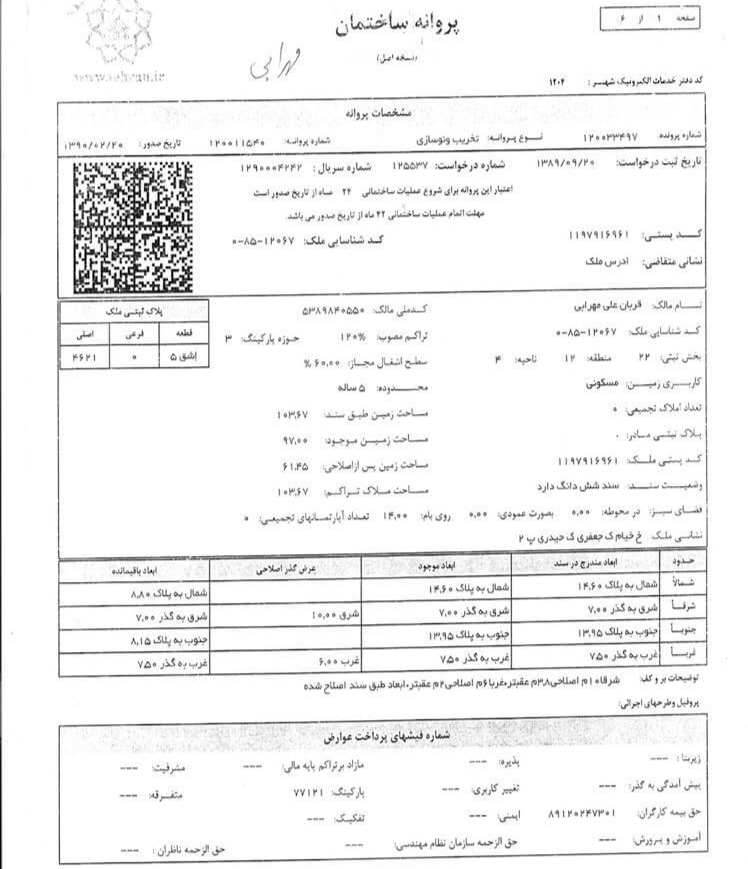 صفحه ۱ از ۶
پروانه ساختمان
(نسخه اصل)
مهرابی
www.tehran.ir
کد دفتر خدمات الکترونیک شهر : ۱۲۰۴
مشخصات پروانه
شماره پرونده: ۱۲۰۰۳۳۴۹۷ نوع پروانه: تخریب ونوسازی شماره پروانه: ۱۲۰۰۱۱۵۴۰ تاریخ صدور: ۱۳۹۰/۰۲/۲۰
تاریخ ثبت درخواست: ۱۳۸۹/۰۹/۲۰ شماره درخواست: ۱۲۵۵۳۷ شماره سریال: ۱۲۹۰۰۰۴۲۴۲
اعتبار این پروانه برای شروع عملیات ساختمانی ۲۴ ماه از تاریخ صدور است
مهلت اتمام عملیات ساختمانی ۴۲ ماه از تاریخ صدور می باشد.
کد پستی: ۱۱۹۷۹۱۶۹۶۱ کد شناسایی ملک: ۱۲۰۶۷-۸۵-۰
نشانی متقاضی: ادرس ملک
نام مالک: قربان علی مهرابی کدملی مالک: ۵۳۸۹۸۴۰۵۵۰
کد شناسایی ملک: ۱۲۰۶۷-۸۵-۰ تراکم مصوب: ۱۲۰% حوزه پارکینگ: ۳
بخش ثبتی: ۲۲ منطقه: ۱۲ ناحیه: ۴ سطح اشغال مجاز: ۶۰,۰۰ %
پلاک ثبتی ملک
قطعه فرعی اصلی
إشق ۵ ۰ ۴۶۲۱
کاربری زمین: مسکونی محدوده: ۵ ساله
تعداد املاک تجمیعی: ۰ مساحت زمین طبق سند: ۱۰۳,۶۷
پلاک ثبتی مادر: ۰ مساحت زمین موجود: ۹۷,۰۰
کد پستی ملک: ۱۱۹۷۹۱۶۹۶۱ مساحت زمین پس ازاصلاحی: ۶۱,۴۵
وضعیت سند: سند شش دانگ دارد مساحت ملاک تراکم: ۱۰۳,۶۷
فضای سبز: در محوطه: ۰,۰۰ بصورت عمودی: ۰,۰۰ روی بام: ۱۴,۰۰ تعداد آپارتمانهای تجمیعی: ۰
نشانی ملک: خ خیام ک جعفری ک حیدری پ ۲
حدود ابعاد مندرج در سند ابعاد موجود عرض گذر اصلاحی ابعاد باقیمانده
شمالاً شمال به پلاک ۱۴,۶۰ شمال به پلاک ۱۴,۶۰ شمال به پلاک ۸,۸۰
شرقاً شرق به گذر ۷,۰۰ شرق به گذر ۷,۰۰ شرق ۱۰,۰۰ شرق به گذر ۷,۰۰
جنوباً جنوب به پلاک ۱۳,۹۵ جنوب به پلاک ۱۳,۹۵ جنوب به پلاک ۸,۱۵
غرباً غرب به گذر ۷,۵۰ غرب به گذر ۷,۵۰ غرب ۶,۰۰ غرب به گذر ۷,۵۰
توضیحات بر و کف: شرقا۱۰م اصلاحی۳,۸م عقبتر،غربا۶م اصلاحی۲م عقبتر،ابعاد طبق سند اصلاح شده
پروفیل وطرحهای اجرائی:
شماره فیشهای پرداخت عوارض
زیربنا : --- پذیره: --- مازاد برتراکم پایه مالی: --- مشرفیت: ---
پیش آمدگی به گذر: --- تغییر کاربری: --- پارکینگ: ۷۷۱۲۱ متفرقه: ---
حق بیمه کارگران: ۸۹۱۲۰۲۴۷۳۰۱ ایمنی: --- تفکیک: ---
آموزش و پرورش: --- حق الزحمه سازمان نظام مهندسی: --- حق الزحمه ناظران : ---